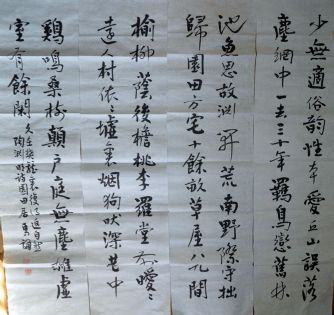 少無適俗韵性本愛丘山誤落
塵網中一去三十年羈鳥戀舊林
池魚思故淵開荒南野際守拙
歸園田方宅十餘畝草屋八九間
榆柳蔭後檐桃李羅堂前曖〻
遠人村依〻墟里烟狗吠深巷中
鷄鳴桑樹顛户庭無塵雜虛
室有餘閑
久在樊籠裏復得返自然
陶淵明詩園田居